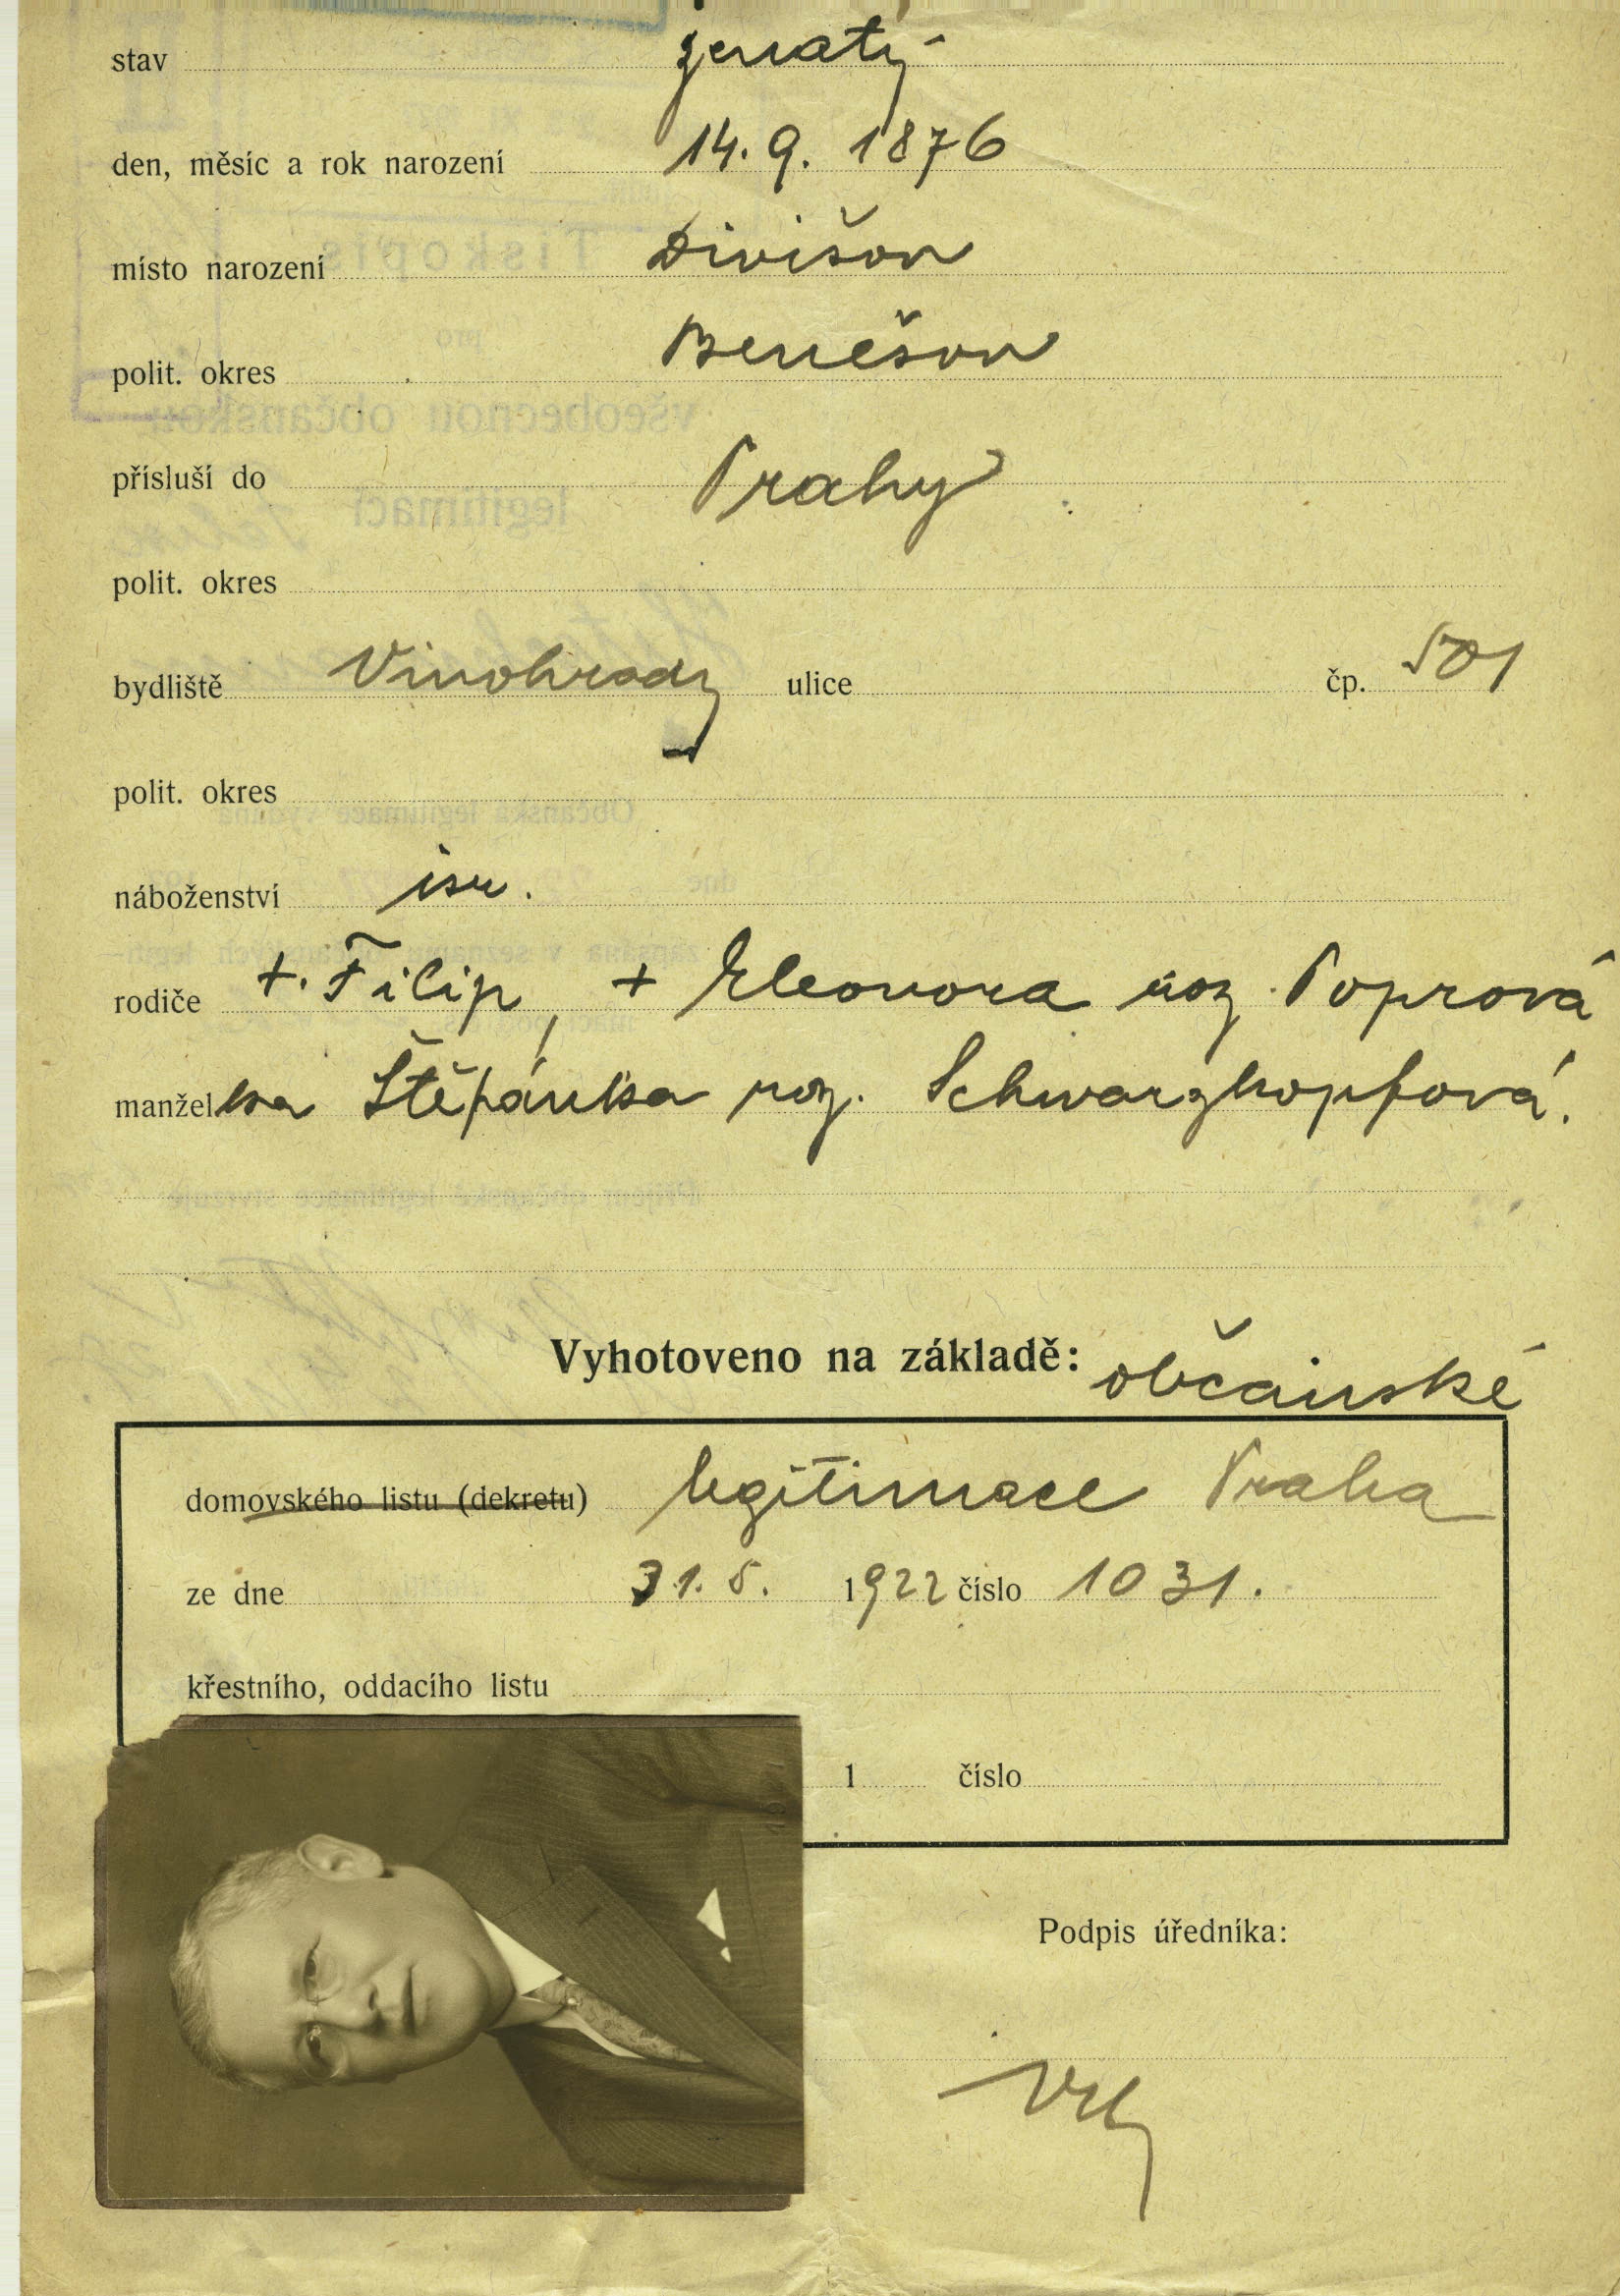 stav ženatý
den, měsíc a rok narození 14. 9. 1876
místo narození Divišov
polit. okres Benešov
přísluší do Prahy
polit. okres
bydliště Vinohrady ulice čp. 501
polit. okres
náboženství isr.
rodiče +. Filip, + Eleonora roz. Poprová
manželka Štěpánka roz. Schwarzkopfová.
Vyhotoveno na základě: občanské
domovského listu (dekretu) legitimace Praha
ze dne 31. 5. 1922 číslo 1031.
křestního, oddacího listu
1 číslo
Podpis úředníka: